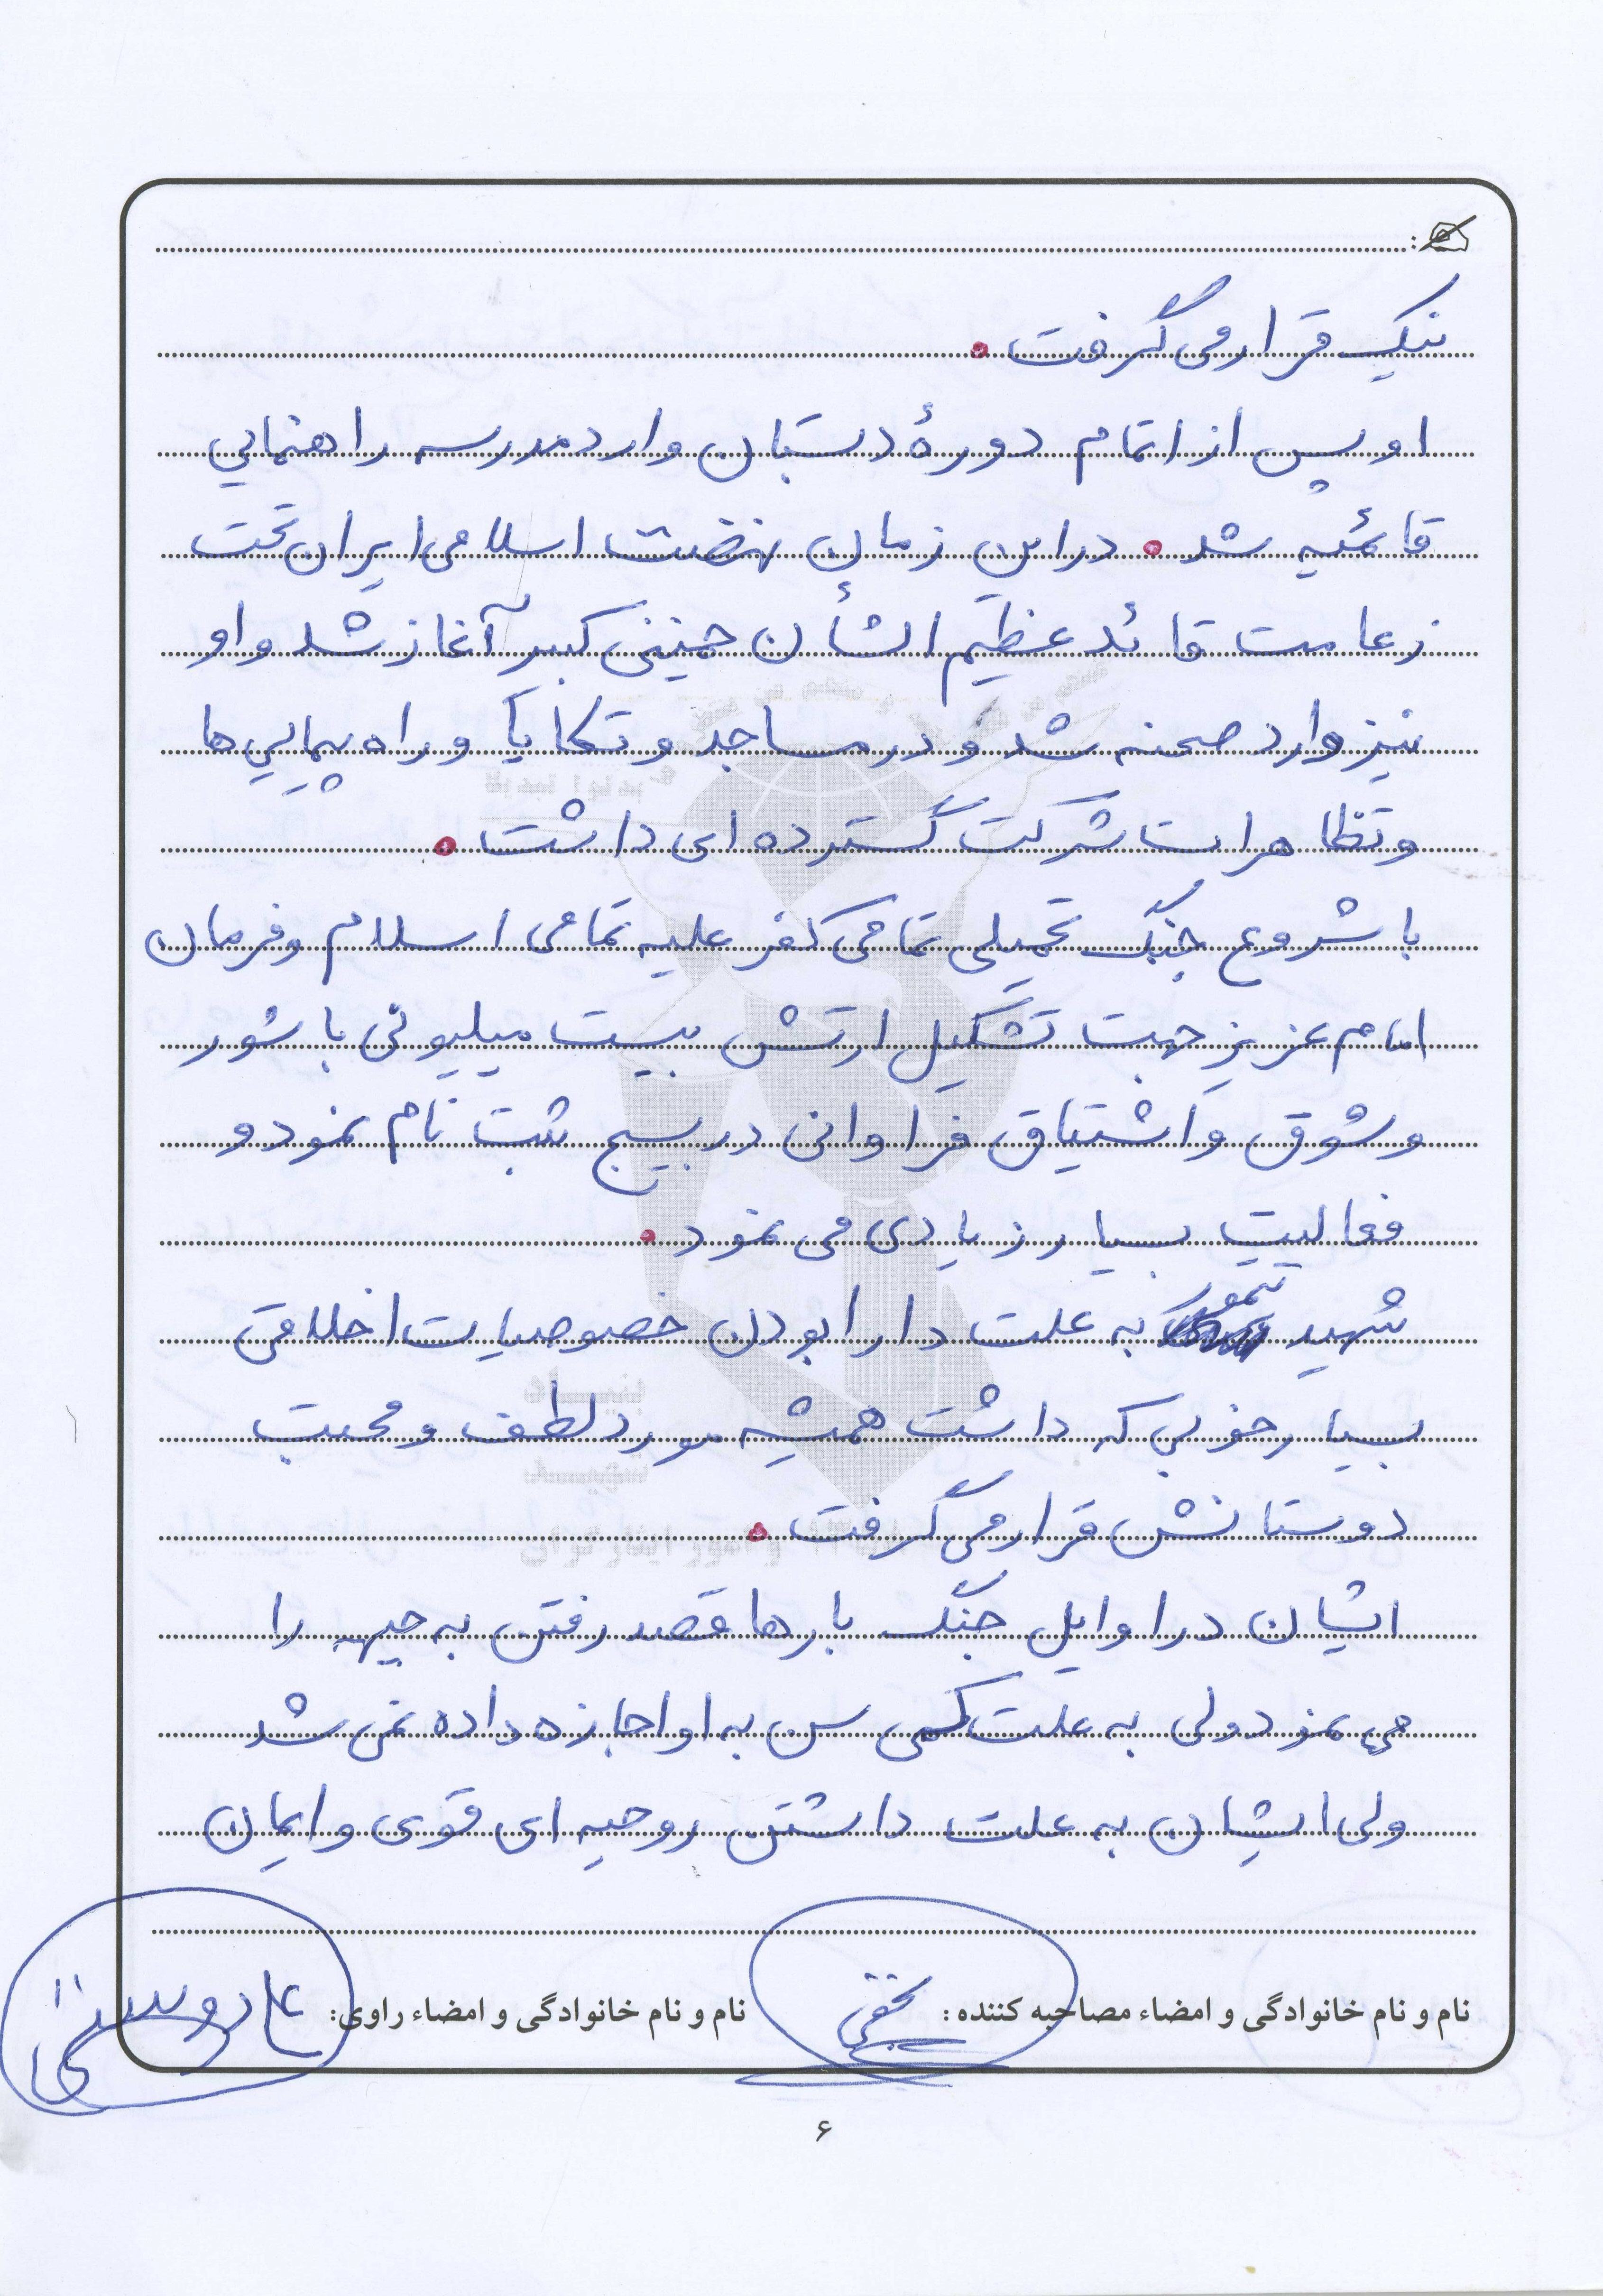 نیک قرار می گرفت.
او پس از اتمام دورهٔ دبستان وارد مدرسه راهنمایی
قائمیه شد. در این زمان نهضت اسلامی ایران تحت
زعامت قائد عظیم الشأن خمینی کبیر آغاز شد و او
نیز وارد صحنه شد و در مساجد و تکایا و راه پیمایی ها
و تظاهرات شرکت گسترده ای داشت.
با شروع جنگ تحمیلی تمامی کفر علیه تمامی اسلام و فرمان
امام عزیز جهت تشکیل ارتش بیست میلیونی با شور
و شوق و اشتیاق فراوانی در بسیج ثبت نام نمود و
فعالیت بسیار زیادی می نمود.
شهید به علت دارا بودن خصوصیات اخلاقی
بسیار خوبی که داشت همیشه مورد لطف و محبت
دوستانش قرار می گرفت.
ایشان در اوایل جنگ بارها قصد رفتن به جبهه را
می نمود ولی به علت کمی سن به او اجازه داده نمی شد
ولی ایشان به علت داشتن روحیه ای قوی و ایمان
نام و نام خانوادگی و امضاء مصاحبه کننده: نام و نام خانوادگی و امضاء راوی:
۶